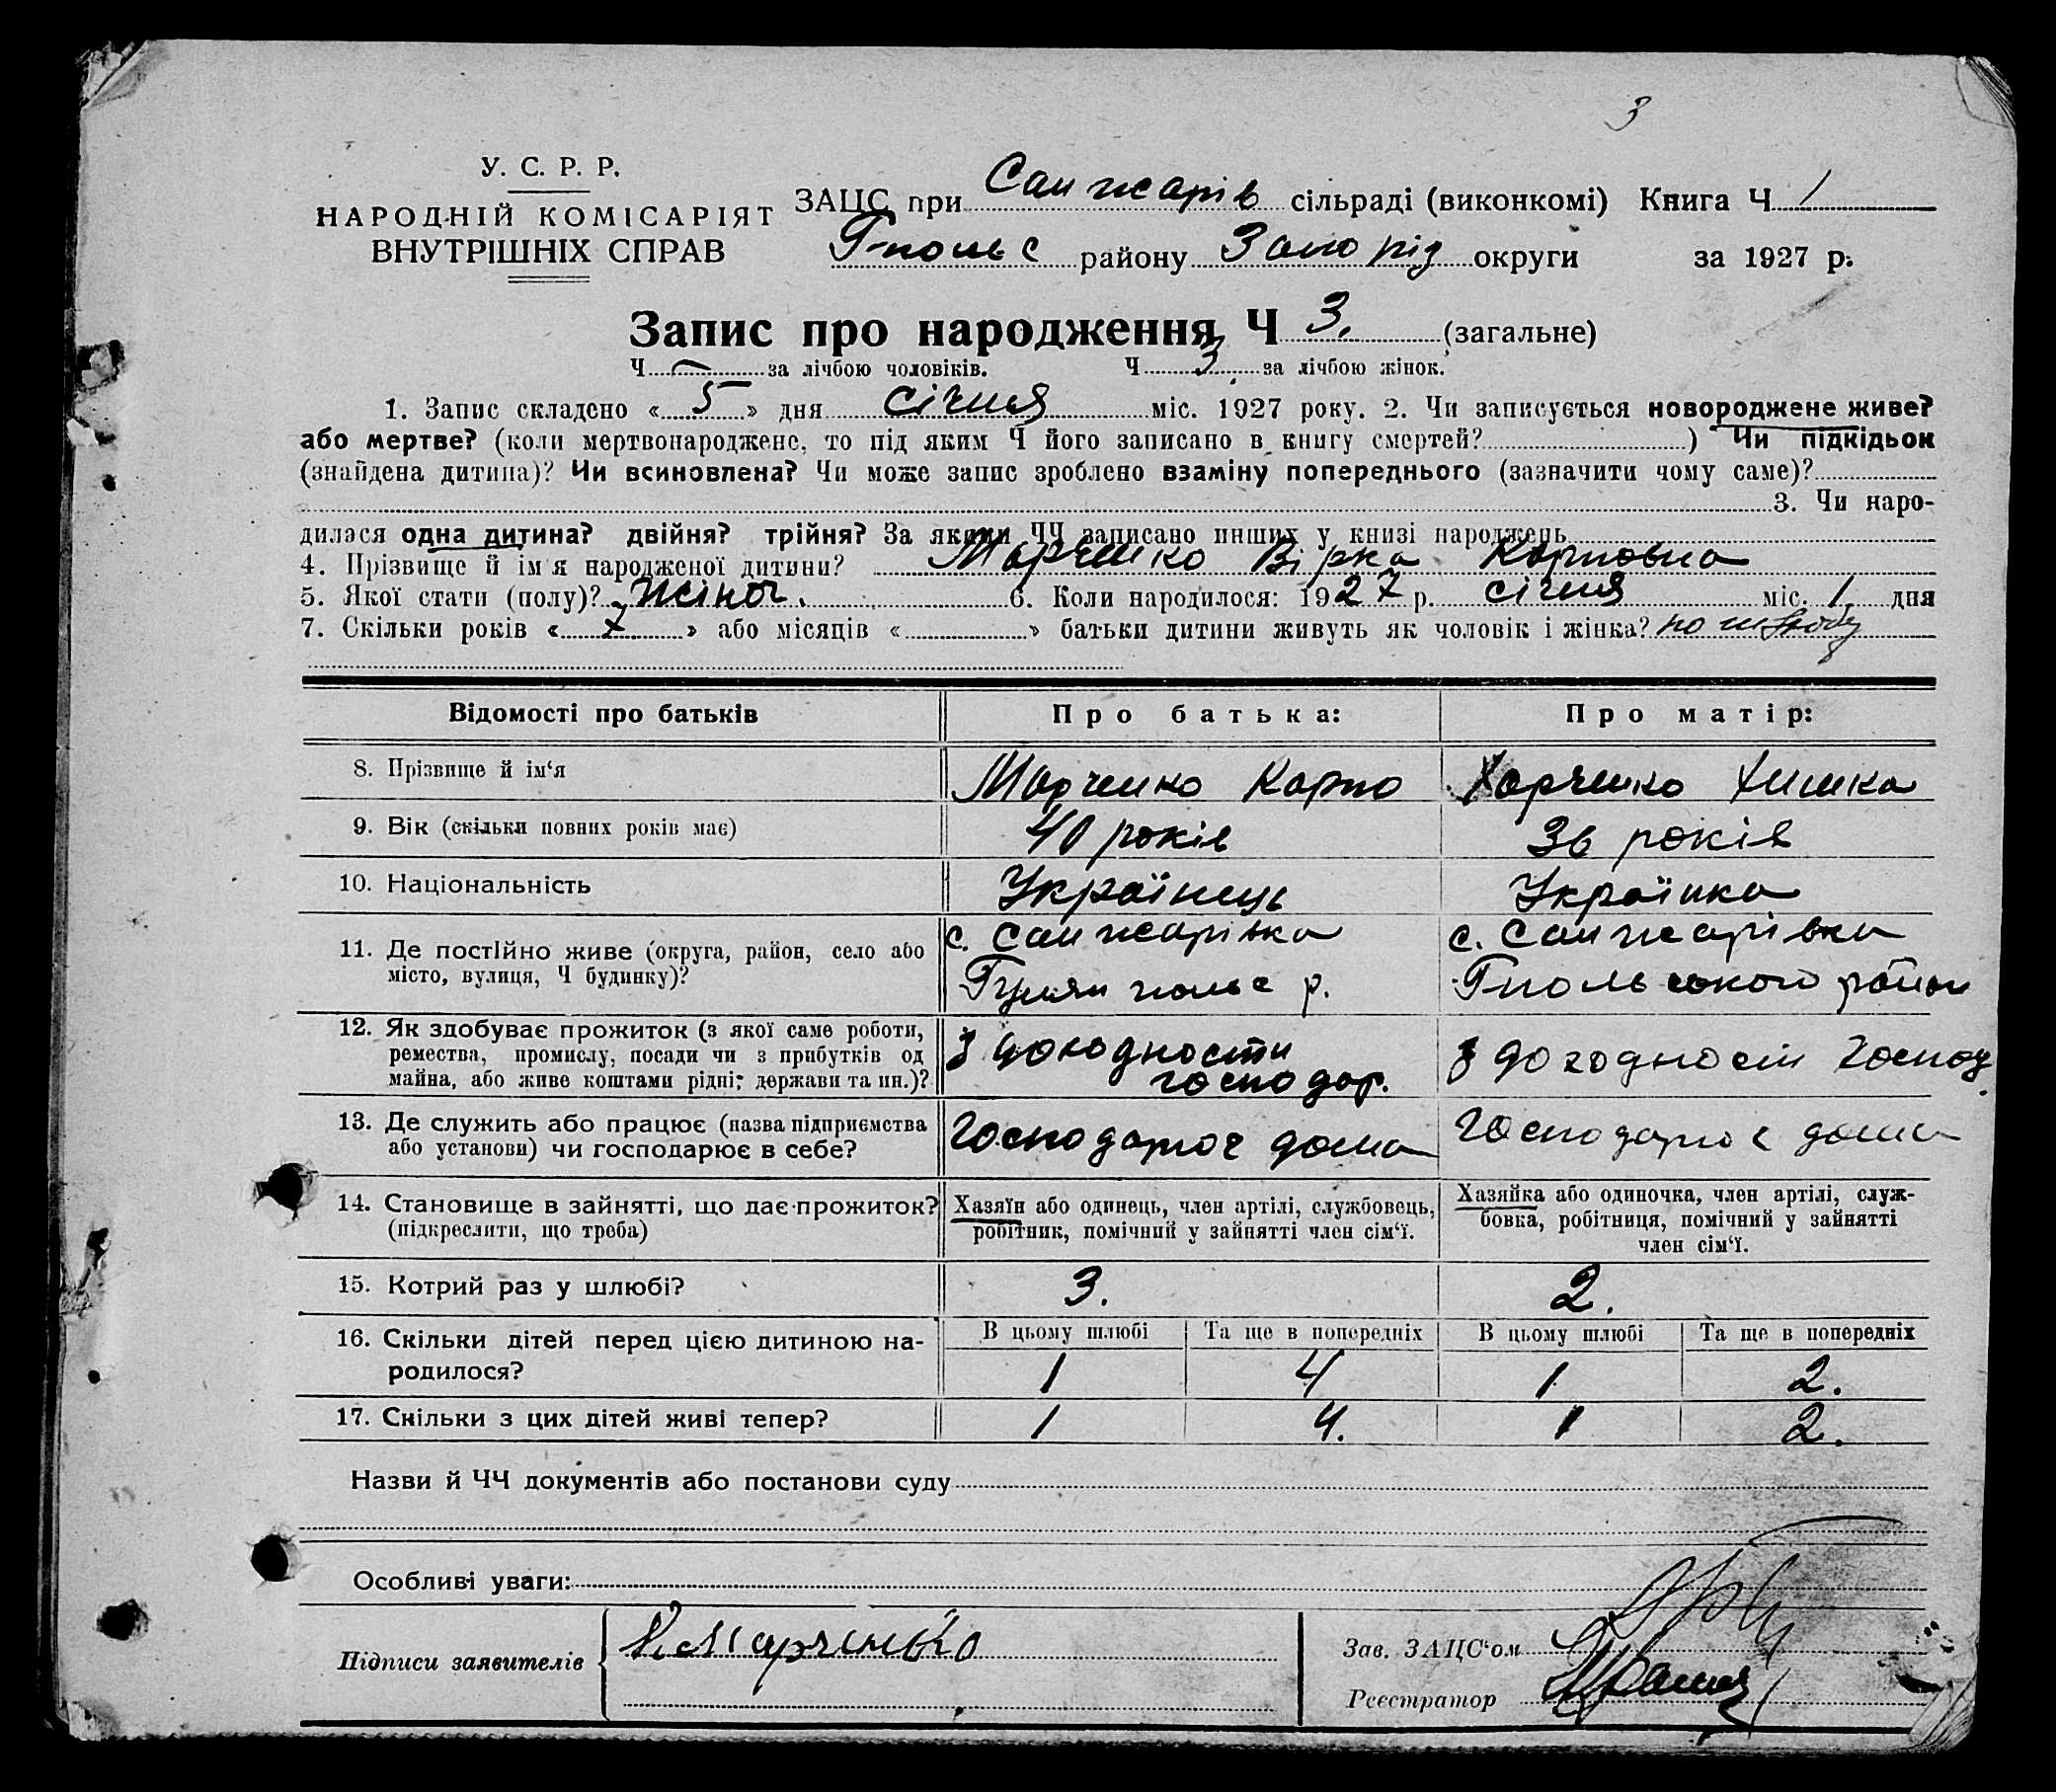 3
У. С. Р. Р.
НАРОДНІЙ КОМІСАРІЯТ
ВНУТРІШНІХ СПРАВ
ЗАЦС при Санжарів сільраді (виконкомі) Книга Ч 1
Гполь с району Запоріз округи за 1927 р.
Запис про народження Ч 3. (загальне)
Ч — за лічбою чоловіків. Ч 3. за лічбою жінок.
1. Запис складено « 5 » дня січня міс. 1927 року. 2. Чи записується новороджене живе?
або мертве? (коли мертвонароджене, то під яким Ч його записано в книгу смертей? ) Чи підкідьок
(знайдена дитина)? Чи всиновлена? Чи може запис зроблено взаміну попереднього (зазначити чому саме)?
3. Чи наро-
дилася одна дитина? двійня? трійня? За якими ЧЧ записано инших у книзі народжень
4. Прізвище й ім'я народженої дитини? Марченко Вірка Карповна
5. Якої стати (полу)? жіноч. 6. Коли народилося: 1927 р. січня міс. 1 дня
7. Скільки років « 7 » або місяців « » батьки дитини живуть як чоловік і жінка? по шлюбу
Відомості про батьків Про батька: Про матір:
8. Прізвище й ім'я Марченко Карпо Харченко Химка
9. Вік (скільки повних років має) 40 років 36 років
10. Національність Українець Українка
11. Де постійно живе (округа, район, село або
місто, вулиця, Ч будинку)?
с. Санжарівка
Гуляй польс р.
с. Санжарівка
Гпольського район
12. Як здобуває прожиток (з якої саме роботи,
ремества, промислу, посади чи з прибутків од
майна, або живе коштами рідні, держави та ин.)?
з доходности
господар.
з доходности господ.
13. Де служить або працює (назва підприємства
або установи) чи господарює в себе?
господарює дома
господарює дома
14. Становище в зайнятті, що дає прожиток?
(підкреслити, що треба)
Хазяїн або одинець, член артілі, службовець,
робітник, помічний у зайнятті член сім'ї.
Хазяйка або одиночка, член артілі, служ-
бовка, робітниця, помічний у зайнятті
член сім'ї.
15. Котрий раз у шлюбі? 3. 2.
16. Скільки дітей перед цією дитиною на-
родилося?
В цьому шлюбі Та ще в попередніх В цьому шлюбі Та ще в попередніх
1 4 1 2.
17. Скільки з цих дітей живі тепер? 1 4. 1 2.
Назви й ЧЧ документів або постанови суду
Особливі уваги:
Підписи заявителів К Марченко
Зав. ЗАЦС'ом
Реєстратор